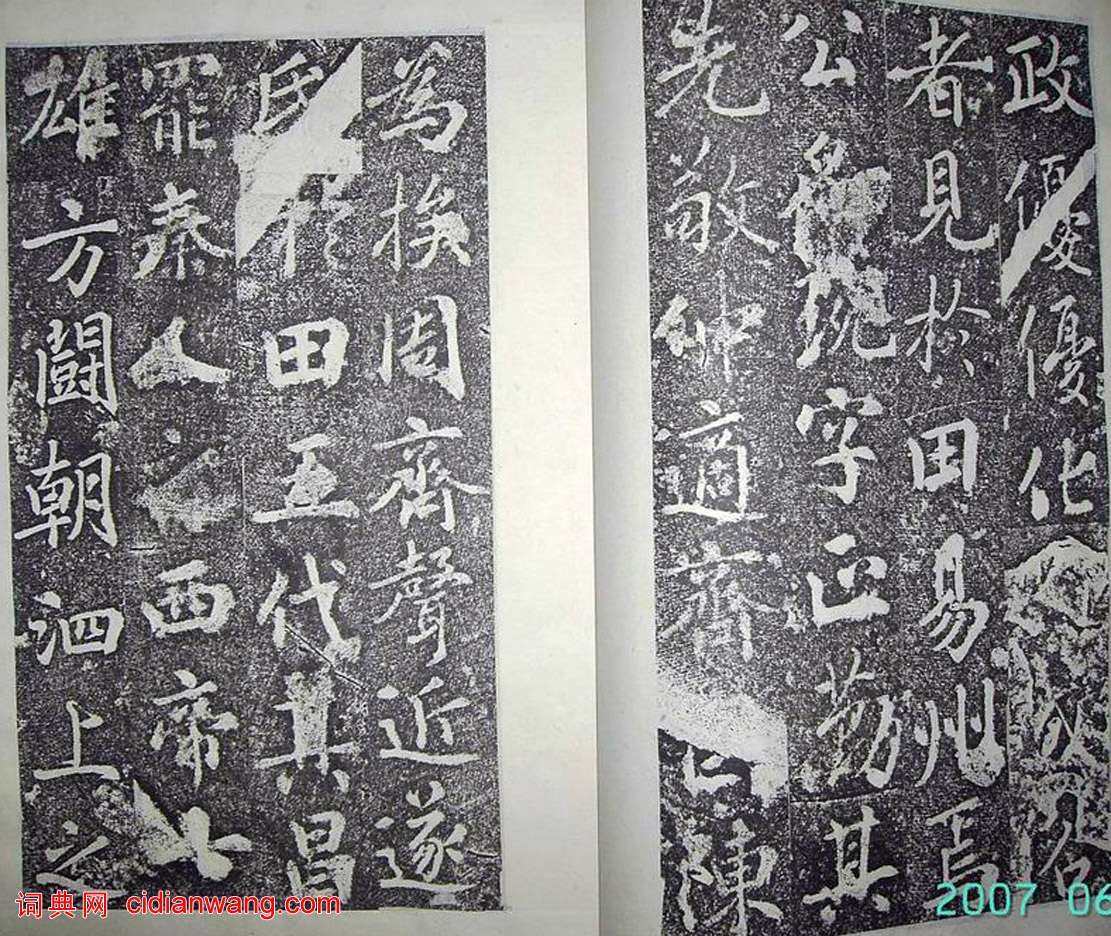 政優優化成
者見於田易州焉
公名琬字正勤其
先敬仲適齊以陳
為族周齊聲近遂
氏於田五代其昌
罷秦人之西帝七
雄方鬪朝泗上之
词典网 cidianwang.com
2007 06